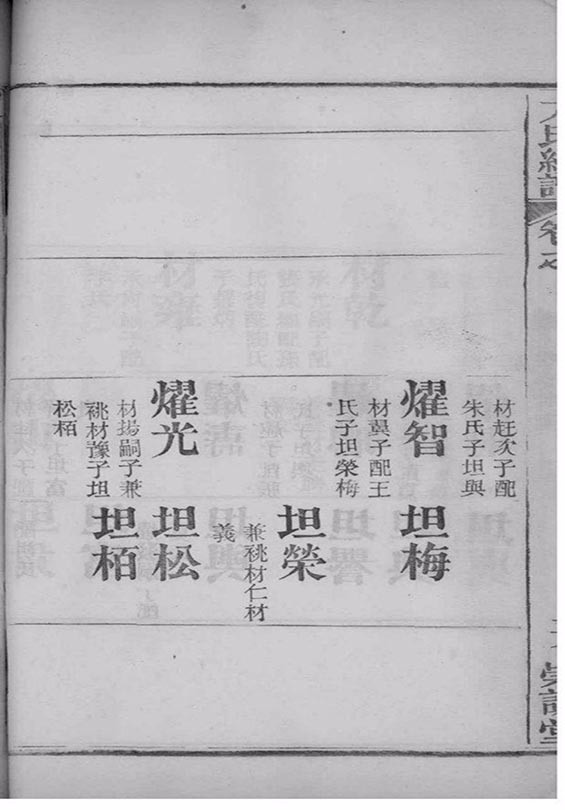 材赶次子配
朱氏子坦興
耀智
材冀子配王
氏子坦榮梅
耀光
材揚嗣子兼
祧材豫子坦
松栢
坦梅
坦榮
兼祧材仁材
義
坦松
坦栢